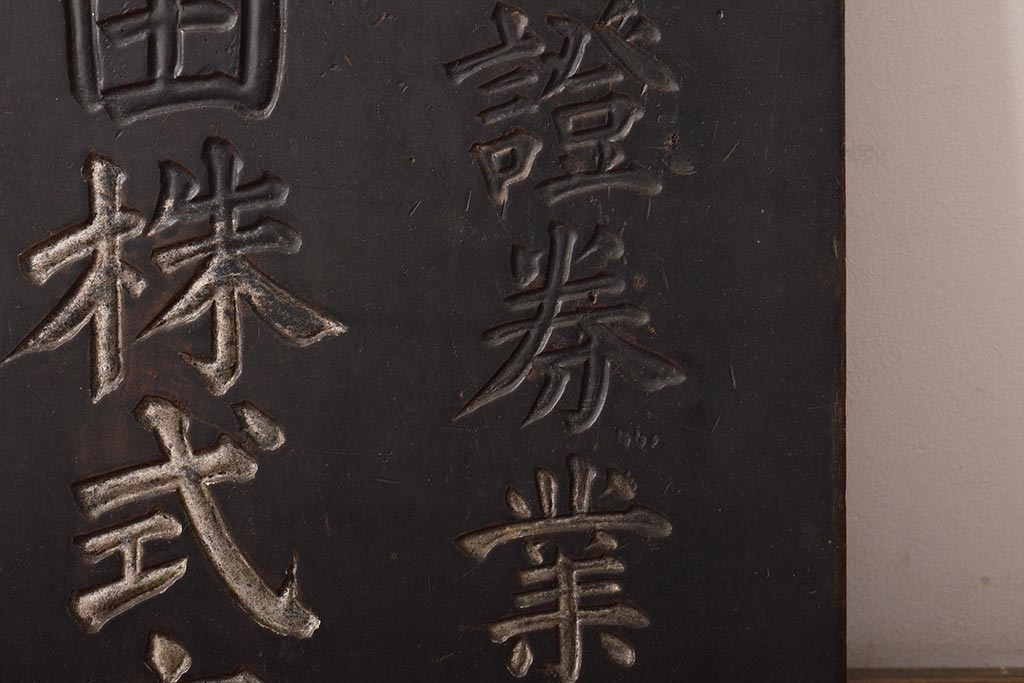 證券業
田株式